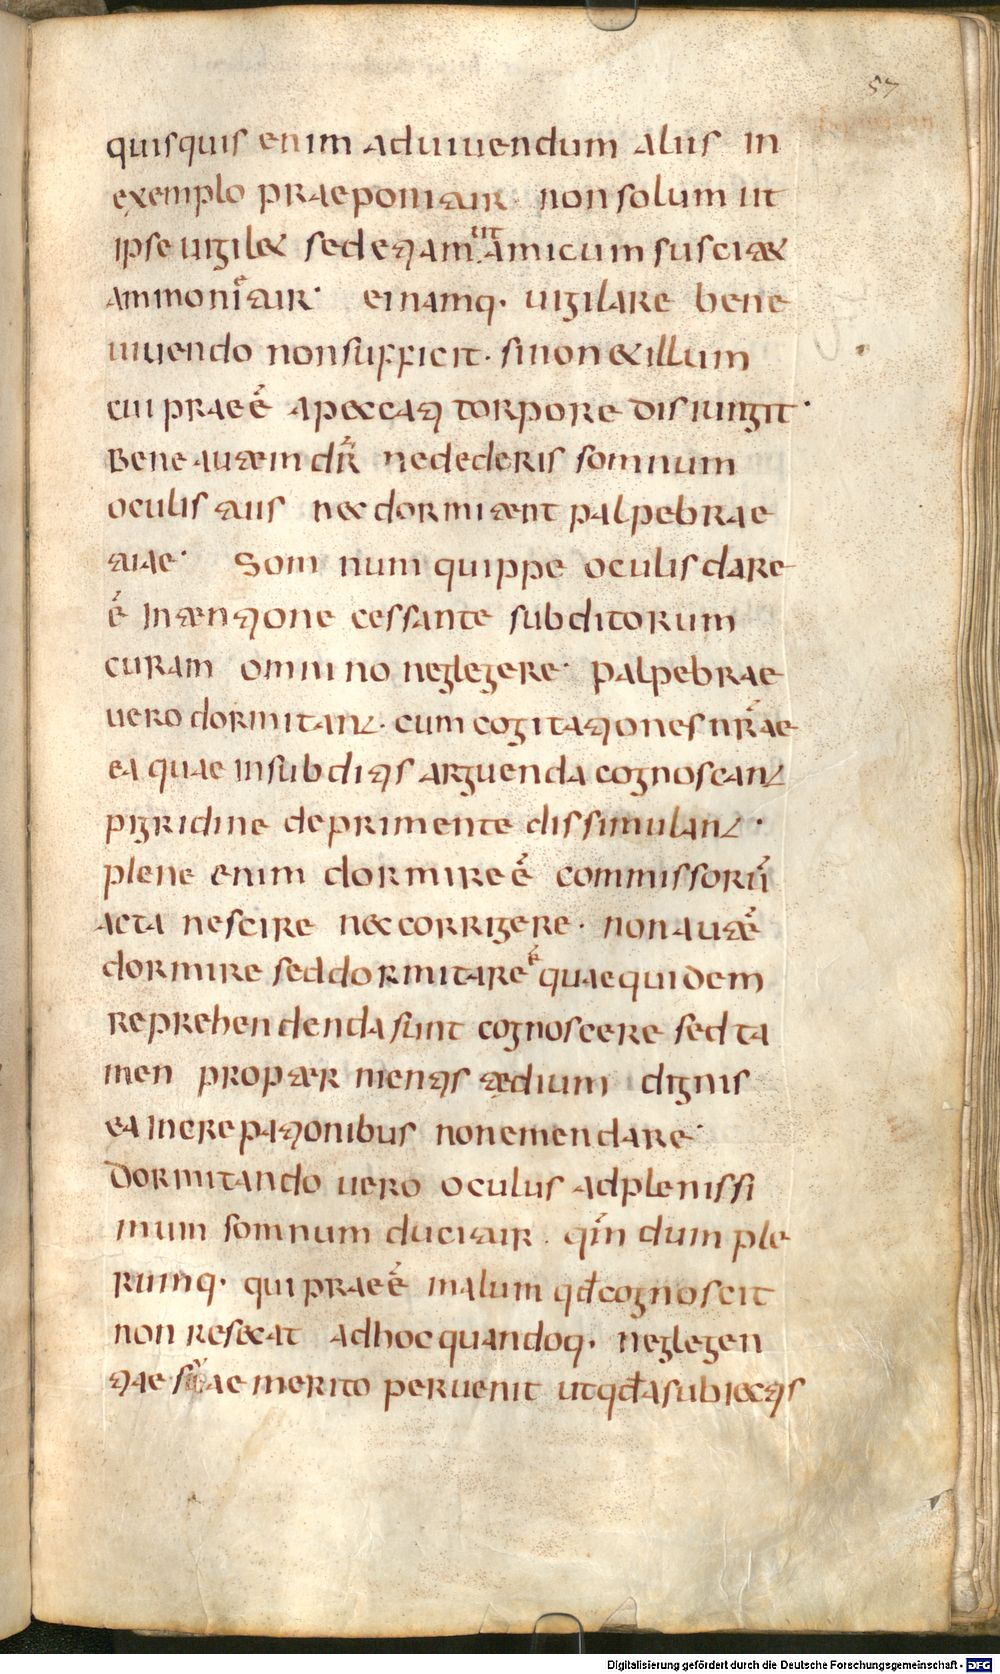 57
quisquis enim aduiuendum alus in
exemplo praeponitur. non solum ut
ipse uigilet sed etiam ut amicum suscitet
ammonetur· ei namq· uigilare bene
uiuendo non sufficit· si non et illum
cui praeḗ a peccati torpore disiungit·
Bene autem dr̄ ne dederis somnum
oculis tuis nec dormitent palpebrae
tuae· Somnum quippe oculis dare
ḗ intentione cessante subditorum
curam omnino neglegere· palpebrae
uero dormitant· cum cogitationes nr̄ae
ea quae in subditis arguenda cognoscant
pigridine deprimente dissimulant·
plene enim dormire ḗ commissorū
acta nescire nec corrigere· non autē
dormire sed dormitare ḗ quae quidem
reprehendenda sunt cognoscere sed ta
men propter mentis tedium dignis
ea increpationibus non emendare·
Dormitando uero oculus ad plenissi
mum somnum ducitur. qm̄ dum ple
rumq· qui praeḗ malum qđ cognoscit
non resecat ad hoc quandoq· neglegen
tiae suae merito peruenit ut qđ a subiectis
Digitalisierung gefördert durch die Deutsche Forschungsgemeinschaft - DFG